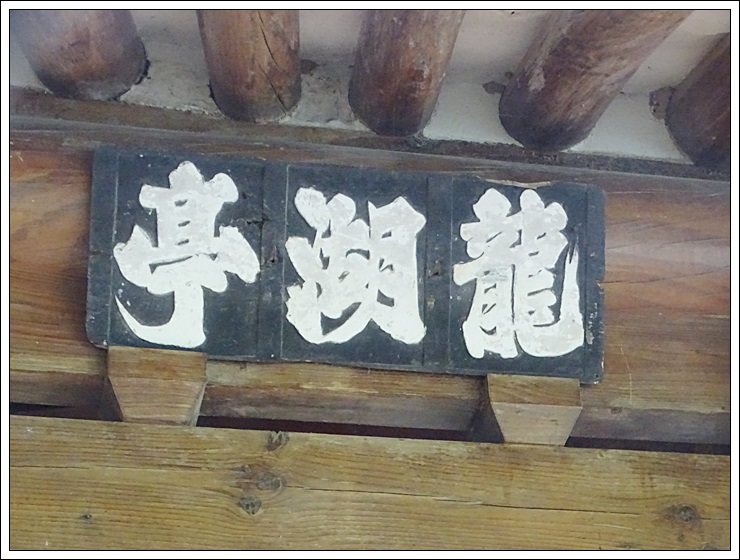 龍湖亭